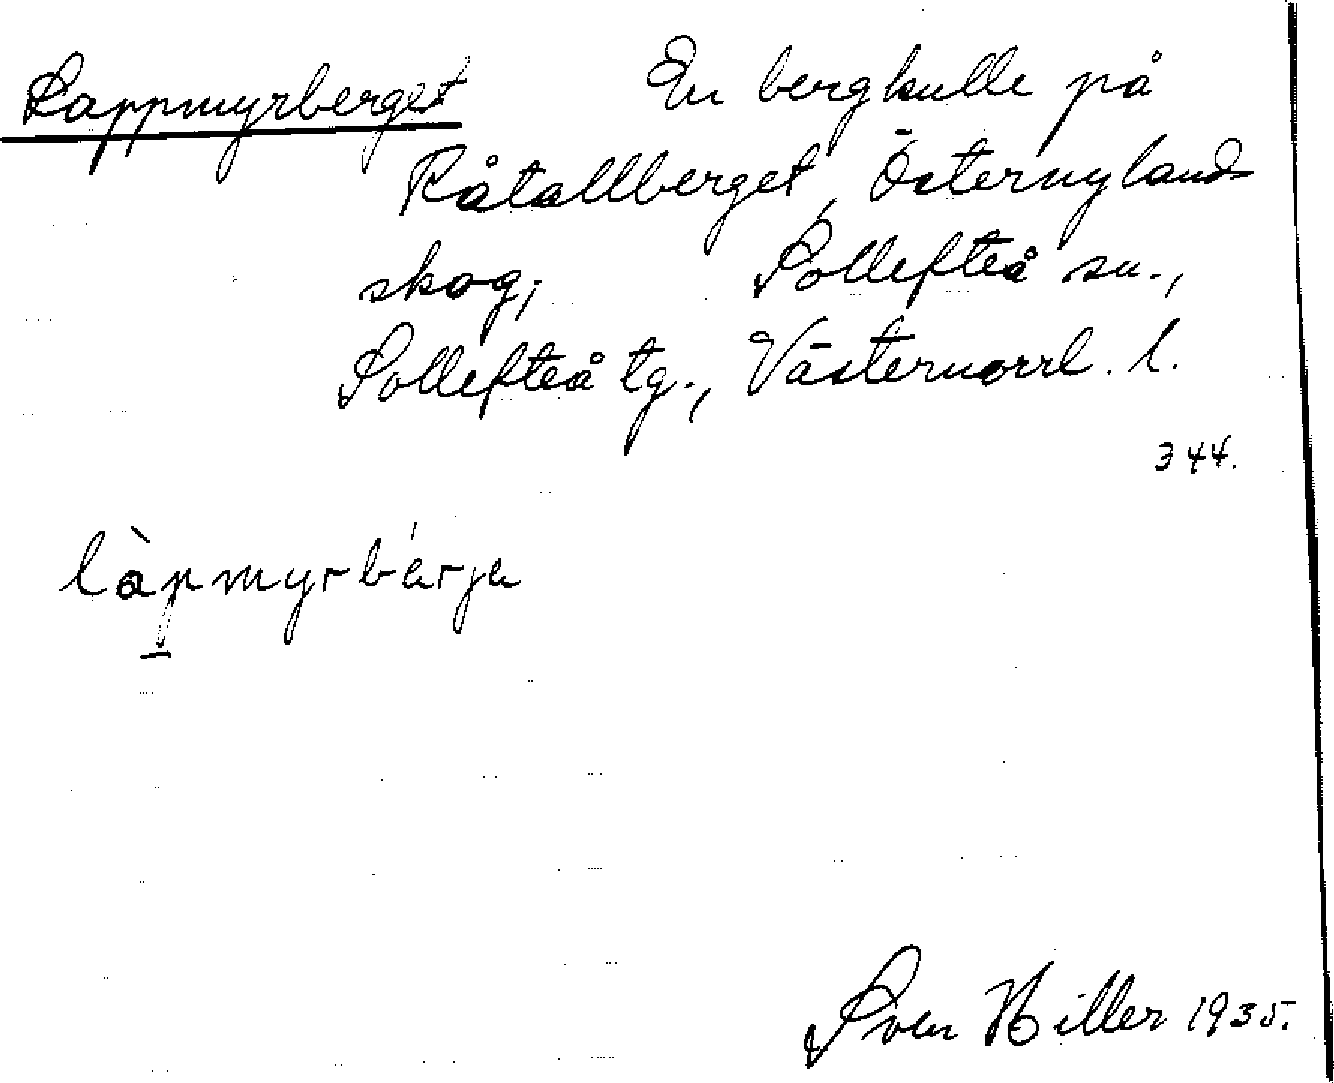 Lappmyrberget En bergkulle på
Råtallberget, Östernylands
skog, Sollefteå sn.,
Sollefteå tg., Västernorrl. l.
344.
làpmyrbárja
Sven Hiller 1935.